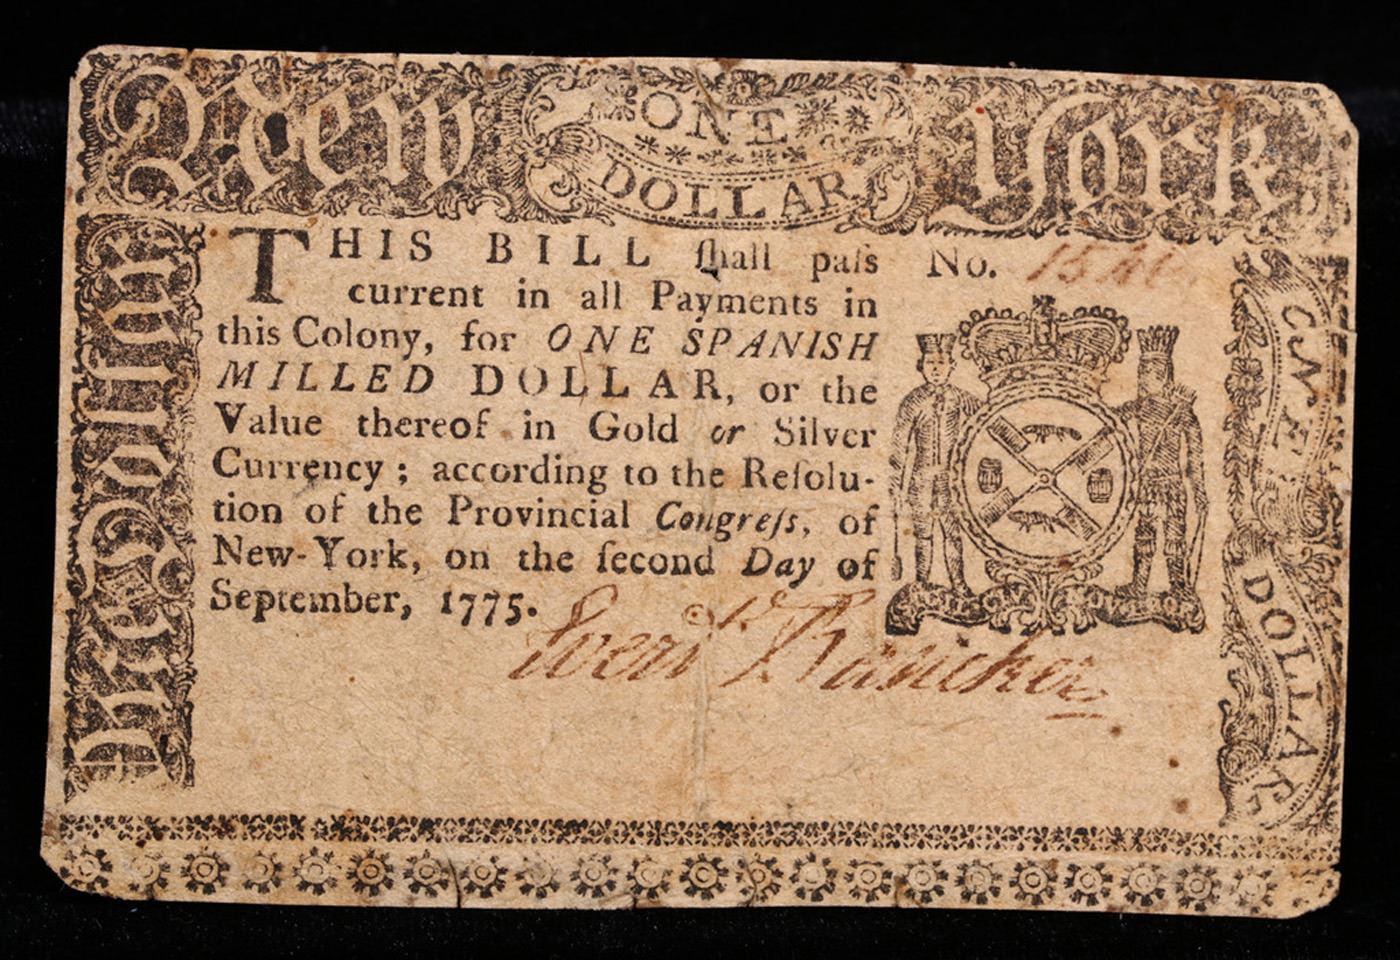 New York
ONE
DOLLAR
THIS BILL ſhall paſs
current in all Payments in
this Colony, for ONE SPANISH
MILLED DOLLAR, or the
Value thereof in Gold or Silver
Currency; according to the Reſolu-
tion of the Provincial Congreſs, of
New-York, on the second Day of
September, 1775.
No.
Evert Bancker
One Dollar
ONE
DOLLAR